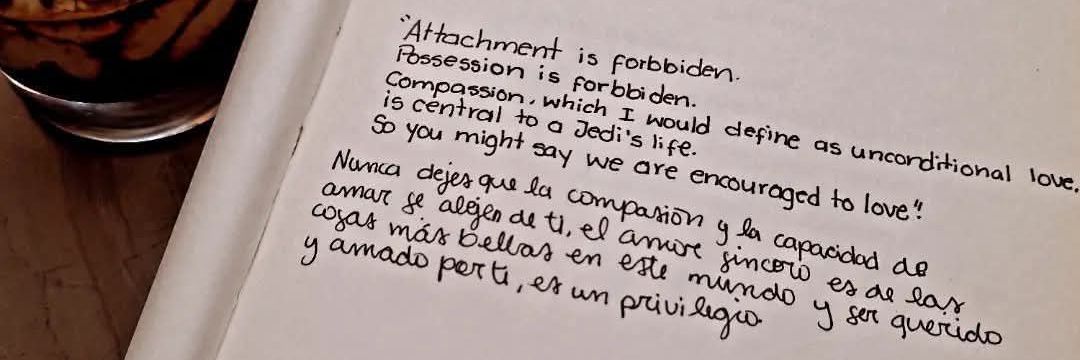 "Attachment is forbbiden.
Possession is forbbiden.
Compassion, which I would define as unconditional love,
is central to a Jedi's life.
So you might say we are encouraged to love".
Nunca dejes que la compasión y la capacidad de
amar se alejen de ti, el amor sincero es de las
cosas más bellas en este mundo y ser querido
y amado por ti, es un privilegio.